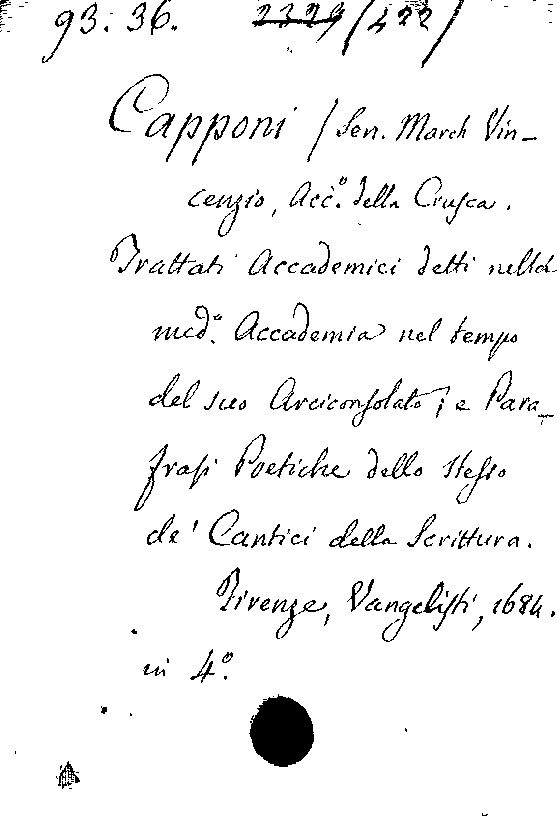 93. 36. 2329 (422)
Capponi (Sen. March Vin-
cenzio, Acc.º della Crusca.
Trattati Accademici detti nella
med.ª Accademia nel tempo
del suo Arciconsolato; e Para-
frasi Poetiche dello stesso
de' Cantici della Scrittura.
Firenze, Vangelisti, 1684.
in 4º.